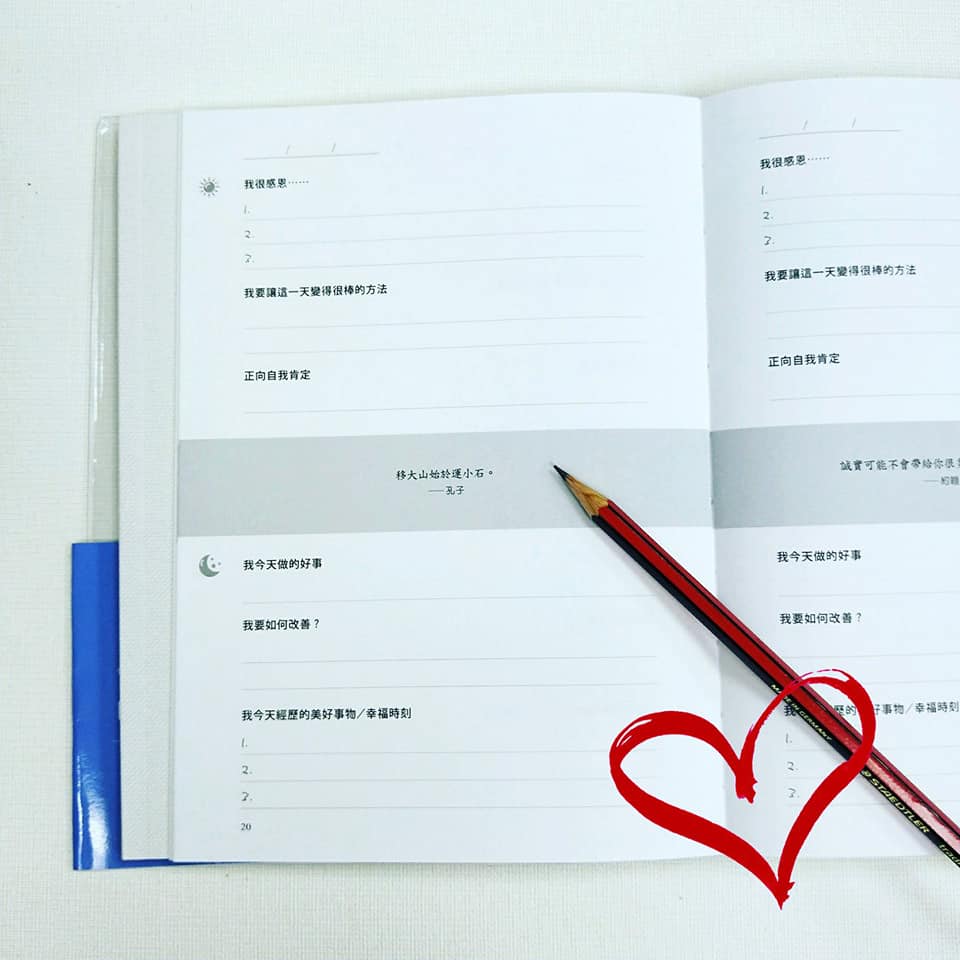 / /
我很感恩……
1.
2.
3.
我要讓這一天變得很棒的方法
正向自我肯定
移大山始於運小石。
——孔子
我今天做的好事
我要如何改善？
我今天經歷的美好事物／幸福時刻
1.
2.
3.
20
/ /
我很感恩……
1.
2.
3.
我要讓這一天變得很棒的方法
正向自我肯定
誠實可能不會帶給你很
——約翰
我今天做的好事
我要如何改善？
歷的 好事物／幸福時刻
1.
2.
3.
MADE IN GERMANY
STAEDTLER